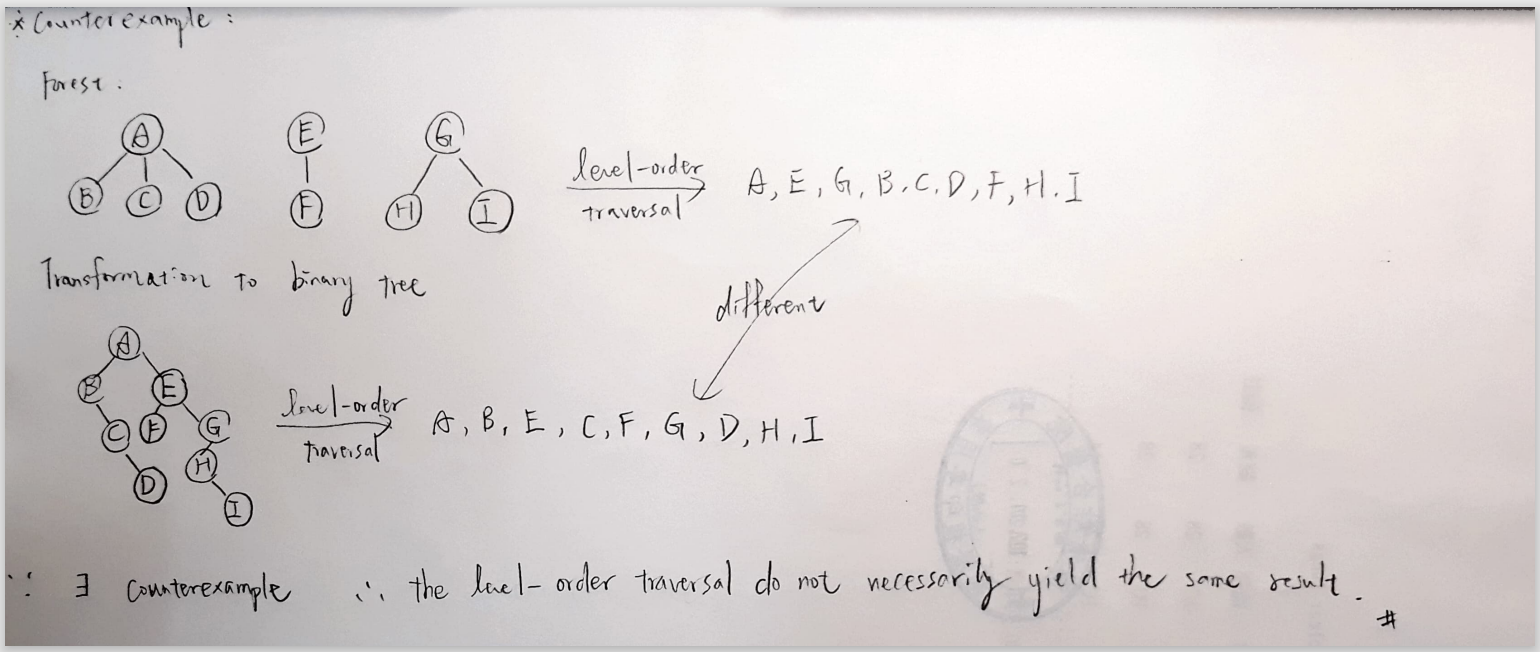 * Counterexample :
Forest :
A E G
B C D F H I
level-order
traversal
A, E, G, B, C, D, F, H, I
Transformation to binary tree
different
A
B E
C F G
D H
I
level-order
traversal
A, B, E, C, F, G, D, H, I
∵ ∃ counterexample ∴ the level-order traversal do not necessarily yield the same result. #